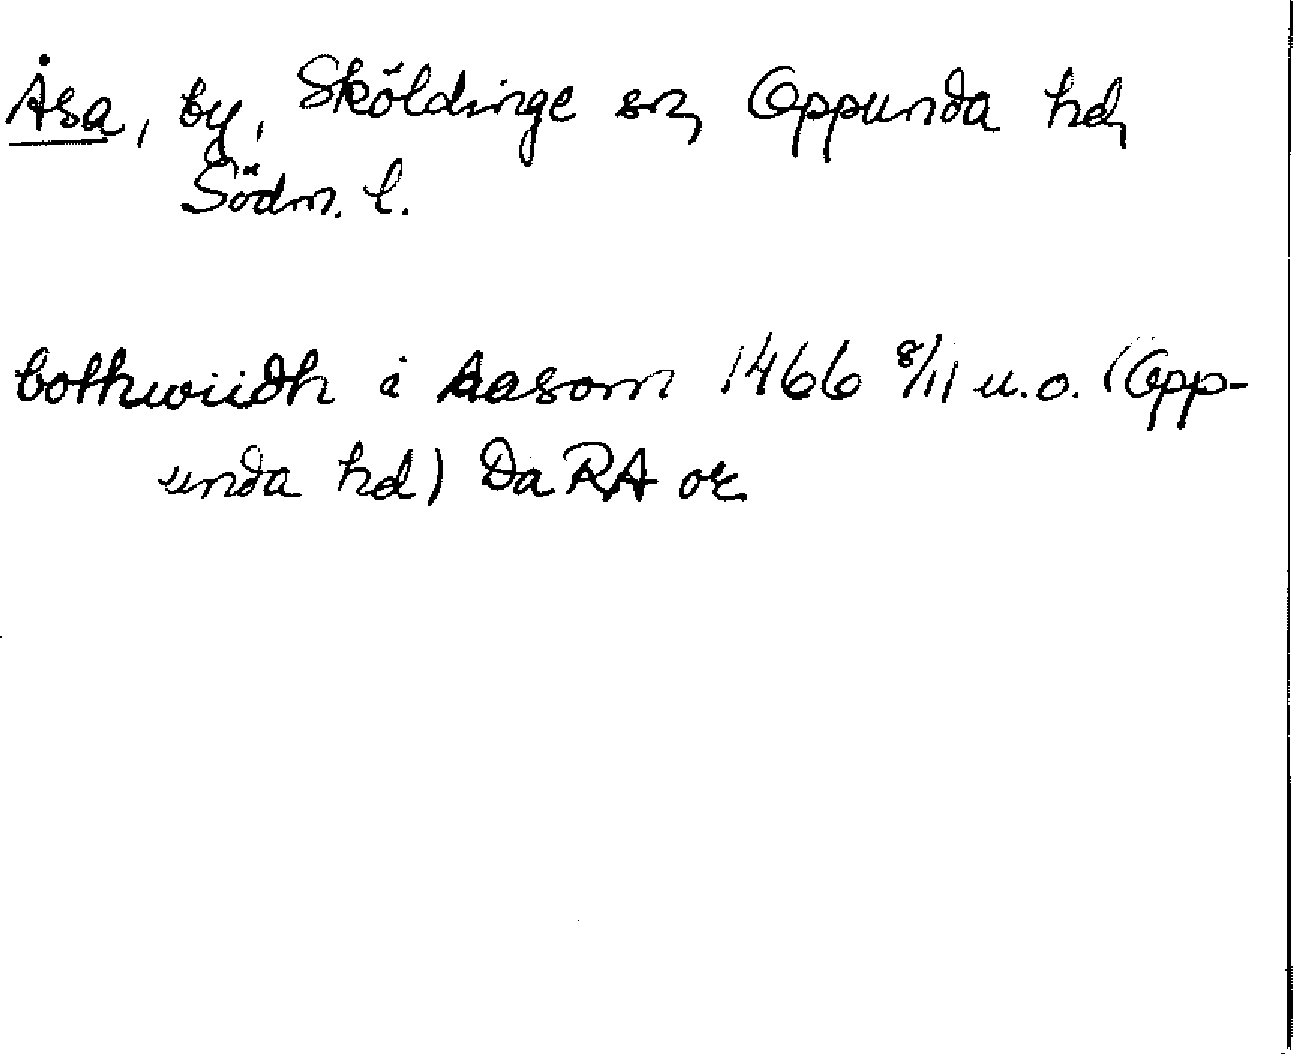 Åsa, by, Sköldinge sn, Oppunda hd,
Södm. l.
bothwiidh i Aasom 1466 8/11 u.o. (Opp-
unda hd) Da RA or